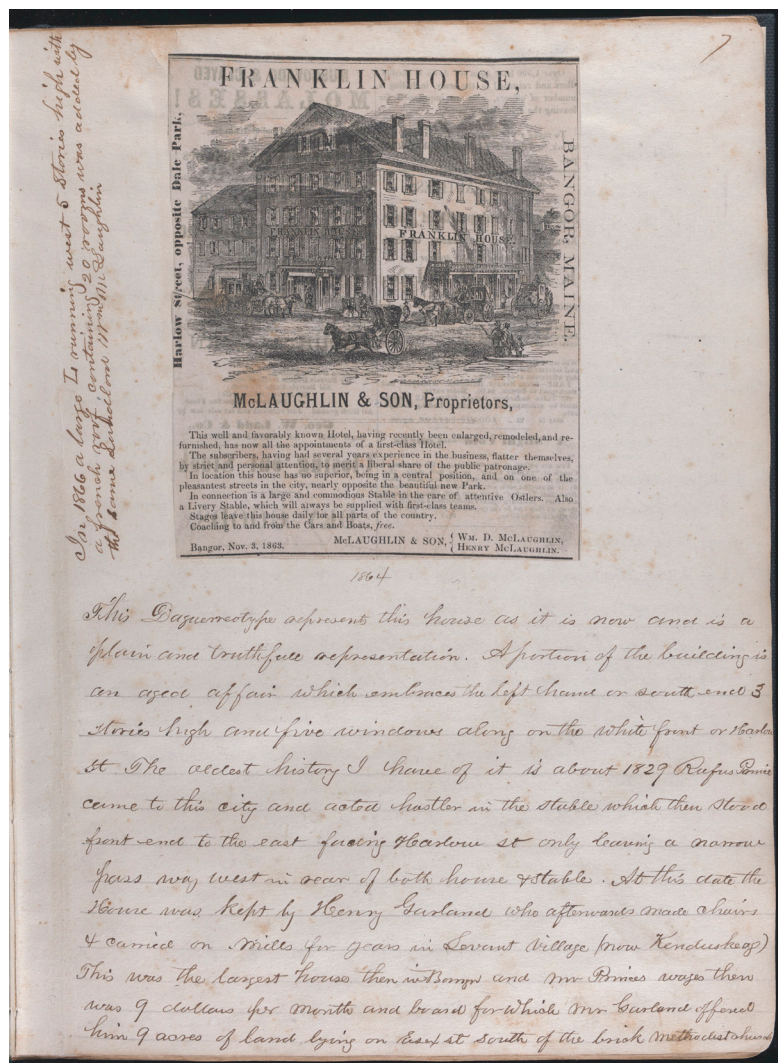 7
In 1866 a large L running west 5 stories high with
a french roof containing 20 rooms was added by
the same Landlord Wm McLaughlin
FRANKLIN HOUSE,
Harlow Street, opposite Dale Park,
BANGOR, MAINE.
FRANKLIN HOUSE
FRANKLIN HOUSE.
McLAUGHLIN & SON, Proprietors,
This well and favorably known Hotel, having recently been enlarged, remodeled, and re-
furnished, has now all the appointments of a first-class Hotel.
The subscribers, having had several years experience in the business, flatter themselves,
by strict and personal attention, to merit a liberal share of the public patronage.
In location this house has no superior, being in a central position, and on one of the
pleasantest streets in the city, nearly opposite the beautiful new Park.
In connection is a large and commodious Stable in the care of attentive Ostlers. Also
a Livery Stable, which will always be supplied with first-class teams.
Stages leave this house daily for all parts of the country.
Coaching to and from the Cars and Boats, free.
Bangor, Nov. 3, 1863.
McLAUGHLIN & SON, { WM. D. McLAUGHLIN,
HENRY McLAUGHLIN.
1864
This Daguerreotype represent this house as it is now and is a
plain and truthfull representation. A portion of the building is
an aged affair which embraces the left hand or south end 3
stories high and five windows along on the white front or Harlow
St The oldest history I have of it is about 1829 Rufus Prince
came to this city and acted hostler in the stable which then stood
front end to the east facing Harlow st only leaving a narrow
pass way west in rear of both house & stable. At this date the
House was kept by Henry Garland who afterwards made chairs
& carried on Mills for years in Levant Village (now Kenduskeag)
This was the largest house then in Bangor and Mr Princes wages then
was 9 dollars per month and board for which Mr Garland offered
him 9 acres of land lying on Essex st south of the brick Methodist church